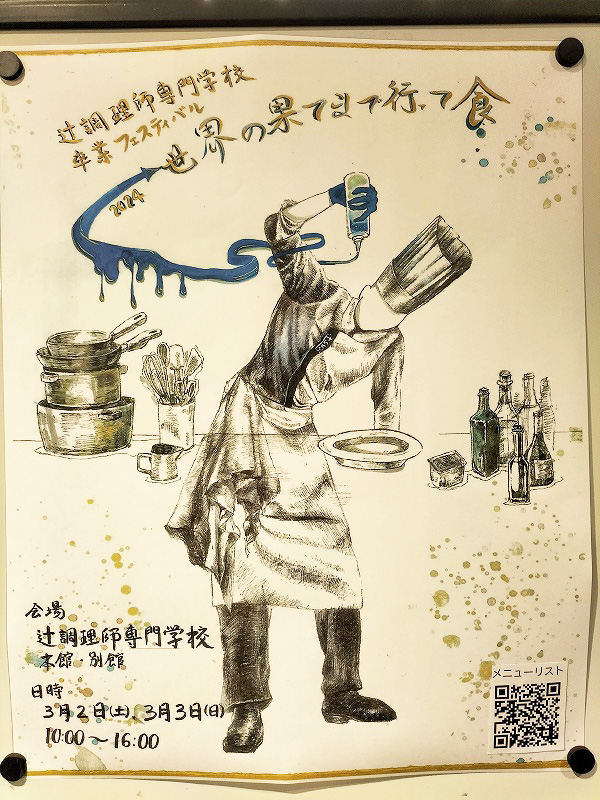 辻調理師専門学校
卒業フェスティバル
2024
世界の果てまで行って食
会場
辻調理師専門学校
本館・別館
日時
3月2日(土)、3月3日(日)
10:00〜16:00
メニューリスト